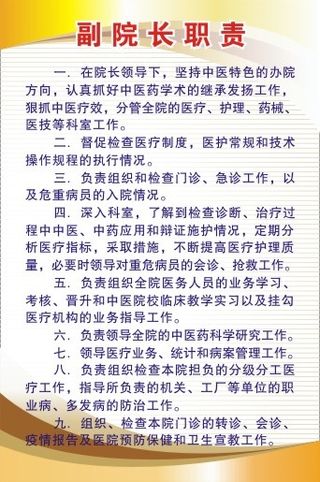 副院长职责
一．在院长领导下，坚持中医特色的办院
方向，认真抓好中医药学术的继承发扬工作，
狠抓中医疗效，分管全院的医疗、护理、药械、
医技等科室工作。
二．督促检查医疗制度，医护常规和技术
操作规程的执行情况。
三．负责组织和检查门诊、急诊工作，以
及危重病员的入院情况。
四．深入科室，了解到检查诊断、治疗过
程中中医、中药应用和辩证施护情况，定期分
析医疗指标，采取措施，不断提高医疗护理质
量，必要时领导对重危病员的会诊、抢救工作。
五．负责组织全院医务人员的业务学习、
考核、晋升和中医院校临床教学实习以及挂勾
医疗机构的业务指导工作。
六．负责领导全院的中医药科学研究工作。
七．领导医疗业务、统计和病案管理工作。
八．负责组织检查本院担负的分级分工医
疗工作，指导所负责的机关、工厂等单位的职
业病、多发病的防治工作。
九．组织、检查本院门诊的转诊、会诊、
疫情报告及医院预防保健和卫生宣教工作。